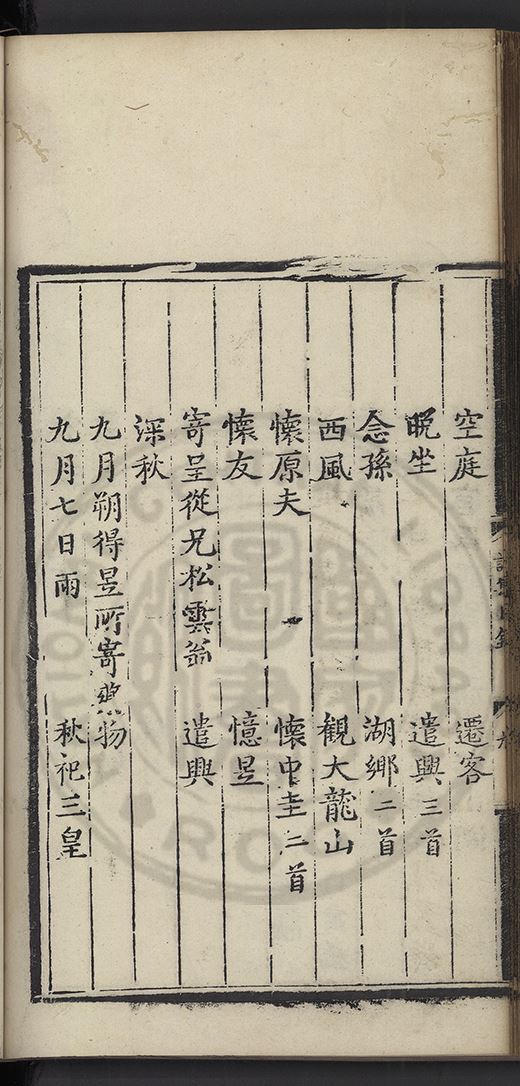 空庭 遷客
晩坐 遣興三首
念孫 湖鄉二首
西風 觀大龍山
懷原夫 懷中圭二首
懷友 憶昱
寄呈從兄松雲翁 遣興
深秋
九月朔得昱所寄 物
九月七日雨 秋祀三皇